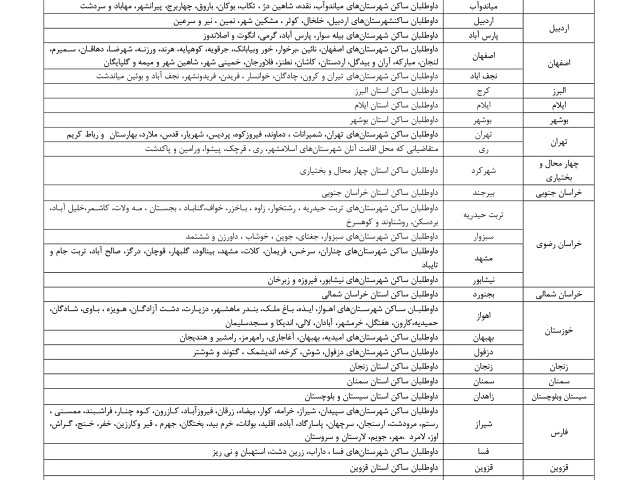 میاندوآب داوطلبان ساکن شهرستان‌های میاندوآب، نقده، شاهین دژ ، تکاب، بوکان، باروق، چهاربرج، پیرانشهر، مهاباد و سردشت
اردبیل اردبیل داوطلبان ساکنشهرستان‌های اردبیل، خلخال، کوثر ، مشگین شهر، نمین ، نیر و سرعین
پارس آباد داوطلبان ساکن شهرستان‌های بیله سوار، پارس آباد، گرمی، انگوت و اصلاندوز
اصفهان اصفهان داوطلبان ساکن شهرستان‌های اصفهان، نائین ،برخوار، خور وبیابانک، جرقویه، کوهپایه، هرند، ورزنه، شهرضا، دهاقان، سمیرم،
لنجان، مبارکه، آران و بیدگل، اردستان، کاشان، نطنز، فلاورجان، خمینی شهر، شاهین شهر و میمه و گلپایگان
نجف آباد داوطلبان ساکن شهرستان‌های تیران و کرون، چادگان، خوانسار ، فریدن، فریدونشهر، نجف آباد و بوئین میاندشت
البرز کرج داوطلبان ساکن استان البرز
ایلام ایلام داوطلبان ساکن استان ایلام
بوشهر بوشهر داوطلبان ساکن استان بوشهر
تهران تهران داوطلبان ساکن شهرستان‌های تهران، شمیرانات ، دماوند، فیروزکوه، پردیس، شهریار، قدس، ملارد، بهارستان و رباط کریم
ری متقاضیانی که محل اقامت آنان شهرستان‌های اسلامشهر، ری ، قرچک، پیشوا، ورامین و پاکدشت
چهار محال و
بختیاری شهرکرد داوطلبان ساکن استان چهار محال و بختیاری
خراسان جنوبی بیرجند داوطلبان ساکن استان خراسان جنوبی
خراسان رضوی تربت حیدریه داوطلبان ساکن شهرستان‌های تربت حیدریه ، رشتخوار، زاوه ، باخزر، خواف،گناباد ، بجستان ، مه ولات، کاشمر،خلیل آباد،
بردسکن، روشناوند و کوهسرخ
سبزوار داوطلبان ساکن شهرستان‌های سبزوار، جغتای، جوین ، خوشاب ، داورزن و ششتمد
مشهد داوطلبان ساکن شهرستان‌های چناران، سرخس، فریمان، کلات، مشهد، بینالود، گلبهار، قوچان، درگز، صالح آباد، تربت جام و
تایباد
نیشابور داوطلبان ساکن شهرستان‌های نیشابور، فیروزه و زبرخان
خراسان شمالی بجنورد داوطلبان ساکن استان خراسان شمالی
خوزستان اهواز داوطلبان ساکن شهرستان‌های اهواز، ایذه، باغ ملک، بندر ماهشهر، دزپارت، دشت آزادگان، هویزه ، باوی، شادگان،
حمیدیه،کارون، هفتگل، خرمشهر، آبادان، لالی، اندیکا و مسجدسلیمان
بهبهان داوطلبان ساکن شهرستان‌های امیدیه، بهبهان، آغاجاری، رامهرمز، رامشیر و هندیجان
دزفول داوطلبان ساکن شهرستان‌های دزفول، شوش، کرخه، اندیمشک ، گتوند و شوشتر
زنجان زنجان داوطلبان ساکن استان زنجان
سمنان سمنان داوطلبان ساکن استان سمنان
سیستان وبلوچستان زاهدان داوطلبان ساکن استان سیستان و بلوچستان
فارس شیراز داوطلبان ساکن شهرستان‌های سپیدان، شیراز، خرامه، کوار، بیضاء، زرقان، فیروزآباد، کازرون، کوه چنار، فراشبند، ممسنی ،
رستم، مرودشت، ارسنجان، سرچهان، پاسارگاد، آباده، اقلید، بوانات، خرم بید، بختگان، جهرم ، قیر وکارزین، خفر، خنج، گراش،
اوز، لامرد ،مهر، جویم، لارستان و سروستان
فسا داوطلبان ساکن شهرستان‌های فسا ، داراب، زرین دشت، استهبان و نی ریز
قزوین قزوین داوطلبان ساکن استان قزوین